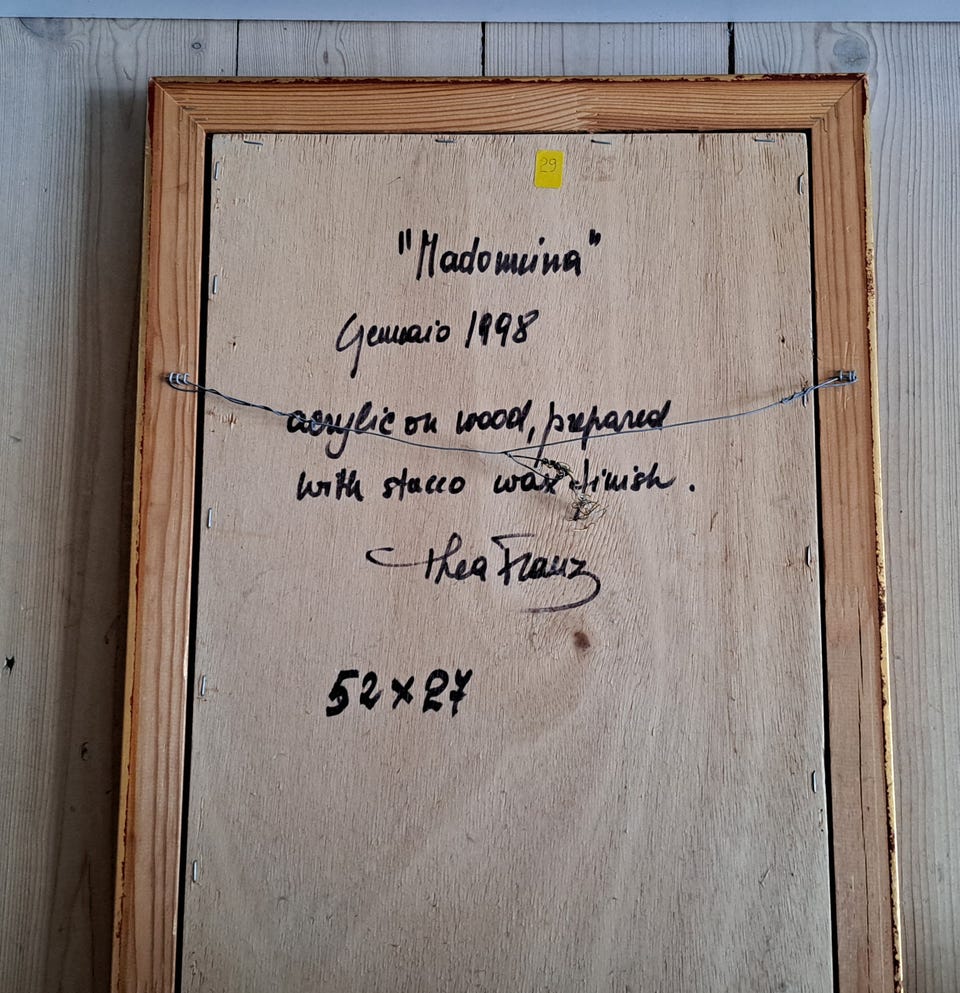 29
"Madonnina"
Gennaio 1998
acrylic on wood, prepared
with stucco wax finish.
Thea Franz
52 x 27